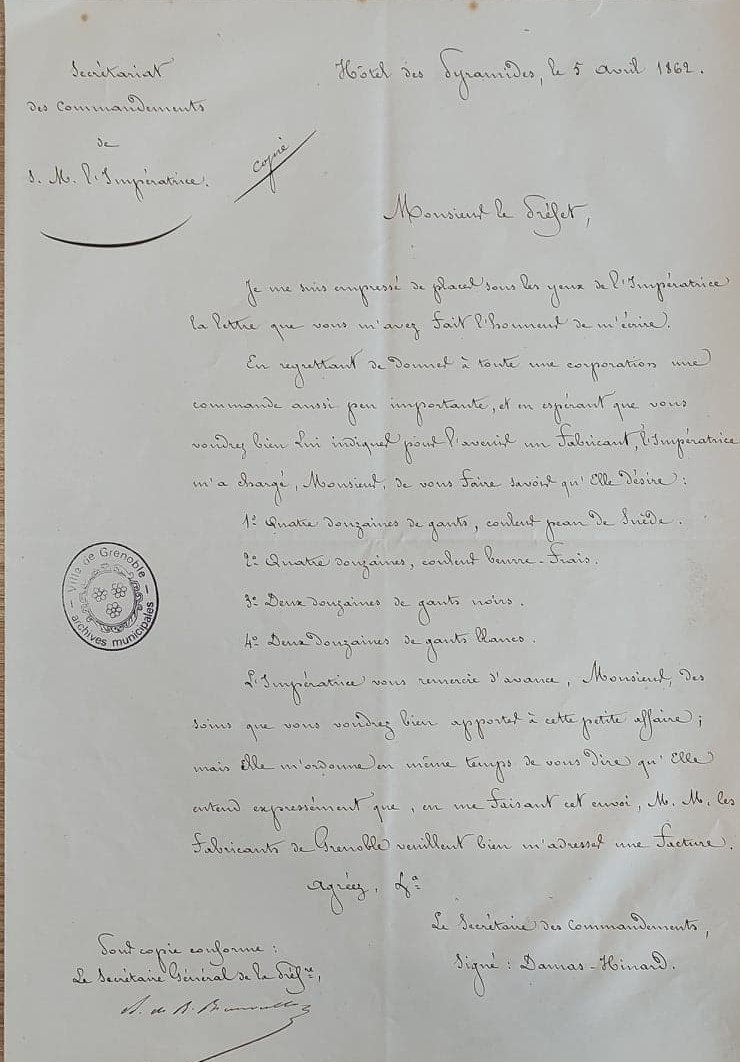 Secrétariat
des Commandements
de
S. M. l'Impératrice.
copie
Hôtel des Pyramides, le 5 avril 1862.
Monsieur le Préfet,
Je me suis empressé de placer sous les yeux de l'Impératrice
la lettre que vous m'avez fait l'honneur de m'écrire.
En regrettant de donner à toute une corporation une
commande aussi peu importante, et en espérant que vous
voudrez bien lui indiquer pour l'avenir un Fabricant, l'Impératrice
m'a chargé, Monsieur, de vous faire savoir qu'Elle désire :
1º Quatre douzaines de gants, couleur peau de Suède.
2º Quatre douzaines, couleur beurre-frais.
3º Deux douzaines de gants noirs.
4º Deux douzaines de gants blancs.
L'Impératrice vous remercie d'avance, Monsieur, des
soins que vous voudrez bien apporter à cette petite affaire ;
mais Elle m'ordonne en même temps de vous dire qu'Elle
entend expressément que, en me faisant cet envoi, M. M. les
Fabricants de Grenoble veuillent bien m'adresser une facture.
Agréez, &a
Le Secrétaire des Commandements,
Signé : Damas-Hinard.
Pour copie conforme :
Le Secrétaire Général de la Préfre,
Ville de Grenoble
archives municipales